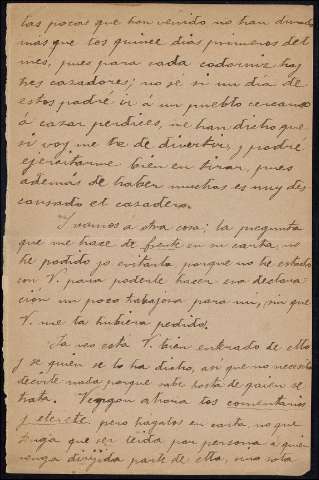 las pocas que han venido no han durado
más que los quince dias primeros del
mes, pues para cada codorniz hay
tres cazadores; no sé si un dia de
estos podré ir á un pueblo cercano
á cazar perdices, me han dicho que
si voy me he de divertir, y podré
ejercitarme bien en tirar, pues
además de haber muchas es muy des
cansado el cazadero.
Y vamos á otra cosa; la pregunta
que me hace de frente en su carta, no
he podido yo evitarla porque no he estado
con V. para poderle hacer esa declara
ción un poco trabajosa para mi, sin que
V. me la hubiera pedido.
Ya veo está V. bien enterado de ello
y se quién se lo ha dicho, asi que no necesito
decirle nada porque sabe hasta de quien se
trata. Vengan ahora los comentarios
y etcete. pero hágalos en carta, no que
tenga que ser leida por persona á quien
venga dirijida parte de ella, una sola